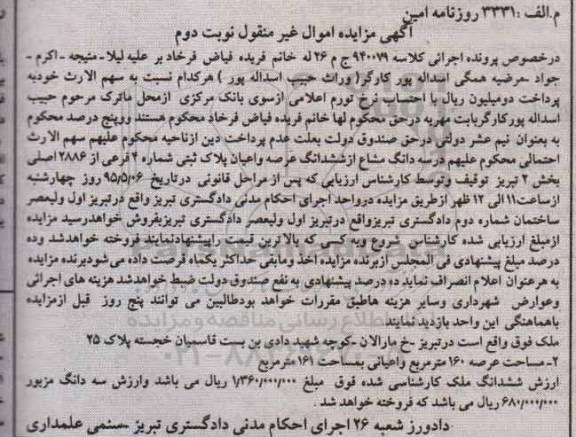 م.الف : ۳۳۳۱ روزنامه امین
آگهی مزایده اموال غیر منقول نوبت دوم
درخصوص پرونده اجرائی کلاسه ۹۴۰۰۷۹ ج م ۲۶ له خانم فریده فیاض فرخاد بر علیه لیلا - متیجه - اکرم -
جواد - مرضیه همگی اسداله پور کارگر( وراث حبیب اسداله پور ) هرکدام نسبت به سهم الارث خودبه
پرداخت دومیلیون ریال با احتساب نرخ تورم اعلامی ازسوی بانک مرکزی ازمحل ماترک مرحوم حبیب
اسداله پورکارگربابت مهریه درحق محکوم لها خانم فریده فیاض فرخاد محکوم هستند وپنج درصد محکوم
به بعنوان نیم عشر دولتی درحق صندوق دولت بعلت عدم پرداخت دین ازناحیه محکوم علیهم سهم الارث
احتمالی محکوم علیهم درسه دانگ مشاع ازششدانگ عرصه واعیان پلاک ثبتی شماره ۴ فرعی از ۲۸۸۶ اصلی
بخش ۲ تبریز توقیف وتوسط کارشناس ارزیابی که پس از مراحل قانونی درتاریخ ۹۵/۵/۰۶ روز چهارشنبه
ازساعت ۱۱ الی ۱۲ ظهر ازطریق مزایده درواحد اجرای احکام مدنی دادگستری تبریز واقع درتبریز اول ولیعصر
ساختمان شماره دوم دادگستری تبریزواقع درتبریز اول ولیعصر دادگستری تبریزبفروش خواهدرسید مزایده
ازمبلغ ارزیابی شده کارشناس شروع وبه کسی که بالاترین قیمت راپیشنهادنماید فروخته خواهدشد وده
درصد مبلغ پیشنهادی فی المجلس ازبرنده مزایده اخذ ومابقی حداکثر یکماه فرصت داده می شودبرنده مزایده
به هرعنوان اعلام انصراف نماید ده درصد پیشنهادی به نفع صندوق دولت ضبط خواهدشد هزینه های اجرائی
وعوارض شهرداری وسایر هزینه هاطبق مقررات خواهد بودطالبین می توانند پنج روز قبل ازمزایده
باهماهنگی این واحد بازدیدنمایند
ملک فوق واقع است درتبریز - خ مارالان - کوچه شهید دادی بن بست قاسمیان خجسته پلاک ۲۵
۲- مساحت عرصه ۱۶۰ مترمربع واعیانی بمساحت ۱۶۱ مترمربع
ارزش ششدانگ ملک کارشناسی شده فوق مبلغ ۱/۳۶۰/۰۰۰/۰۰۰ ریال می باشد وارزش سه دانگ مزبور
۶۸۰/۰۰۰/۰۰۰ ریال می باشد که فروخته خواهد شد .
دادورز شعبه ۲۶ اجرای احکام مدنی دادگستری تبریز - صنمی علمداری